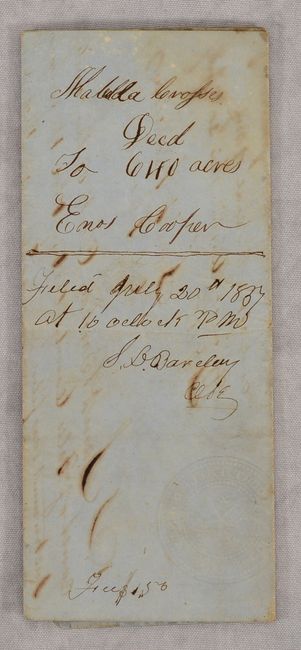 Matilda Crosses
Deed
To 640 acres
Enos Cooper
Filed July 20th 1857
at 10 oclock PM
J. D. Barclay
Clk
Fees 1,50